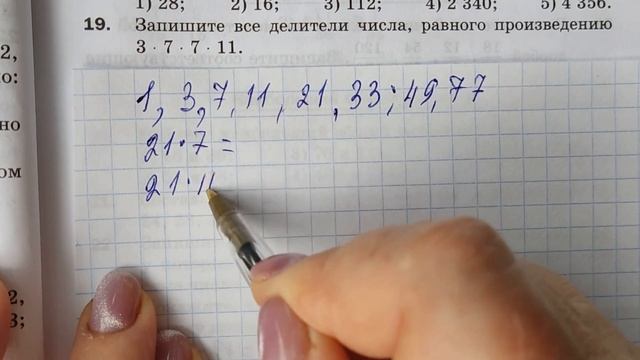 1) 28; 2) 16; 3) 112; 4) 2 340; 5) 4 356.
19. Запишите все делители числа, равного произведению
3 · 7 · 7 · 11.
1, 3, 7, 11, 21, 33; 49, 77
21 · 7 =
21 · 11
2,
но
ом
2,
3;